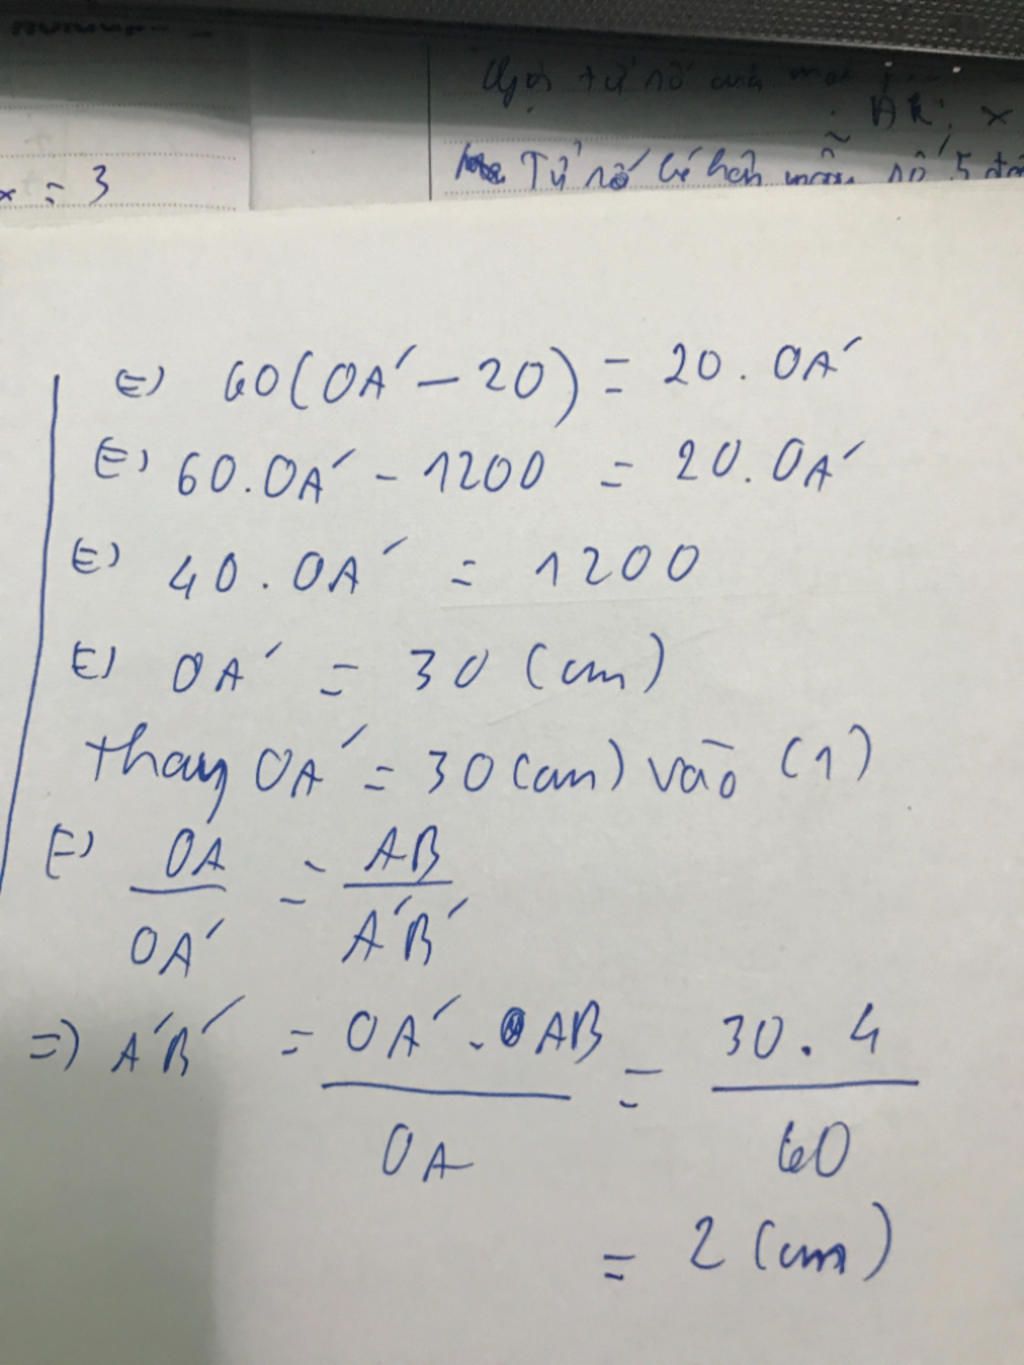 x = 3
Gọi tử số của
x
Tử số bé hơn mẫu số 5 đơ
⇔ 60(OA' - 20) = 20. OA'
⇔ 60.OA' - 1200 = 20. OA'
⇔ 40. OA' = 1200
⇔ OA' = 30 (cm)
thay OA' = 30 (cm) vào (1)
⇔ OA/OA' = AB/A'B'
=> A'B' = OA'.AB/OA = 30.4/60
= 2 (cm)